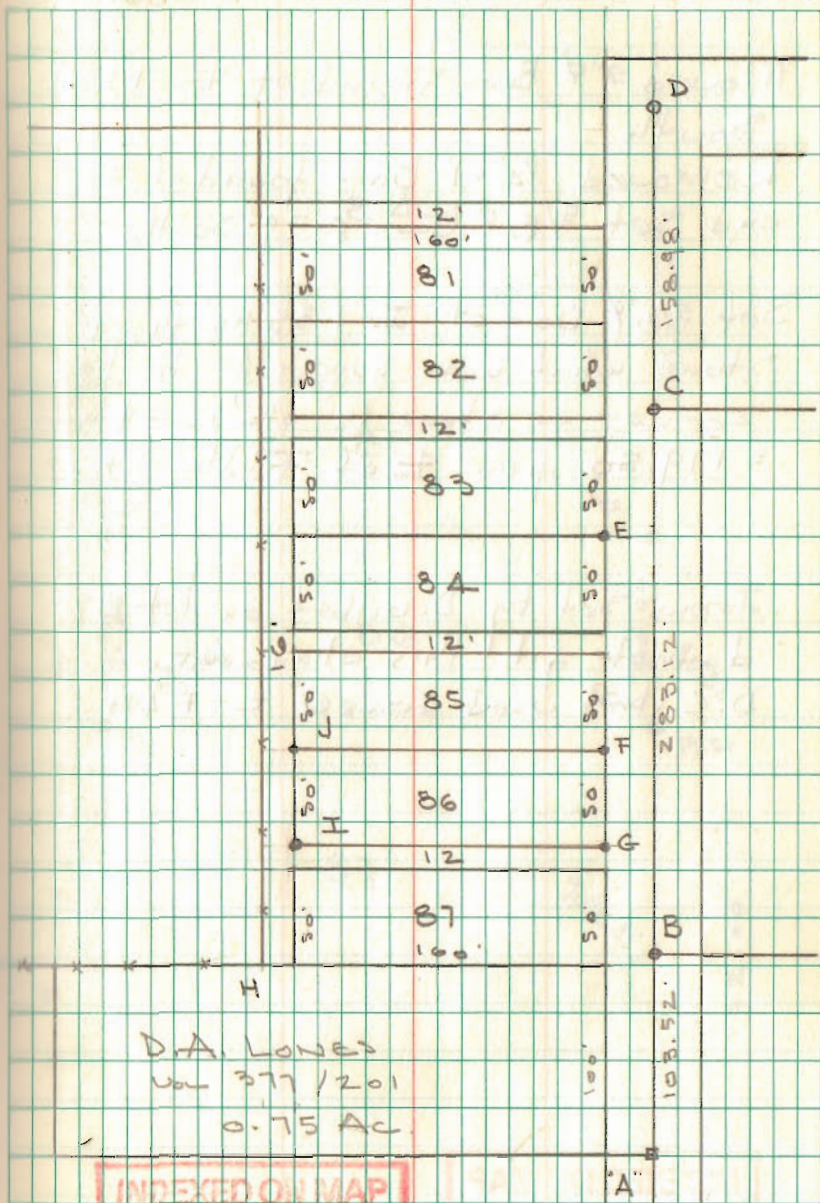 D
12'
160'
50' 81 50'
158.98'
50' 82 50'
C
12'
50' 83 50'
E
50' 84 50'
12'
16'
50' 85 50'
283.12'
J
F
50' 86 50'
I
G
12
50' 87 50'
B
160'
H
D.A. LONES
VOL 377/201
0.75 AC.
100'
103.52'
"A"
INDEXED ON MAP